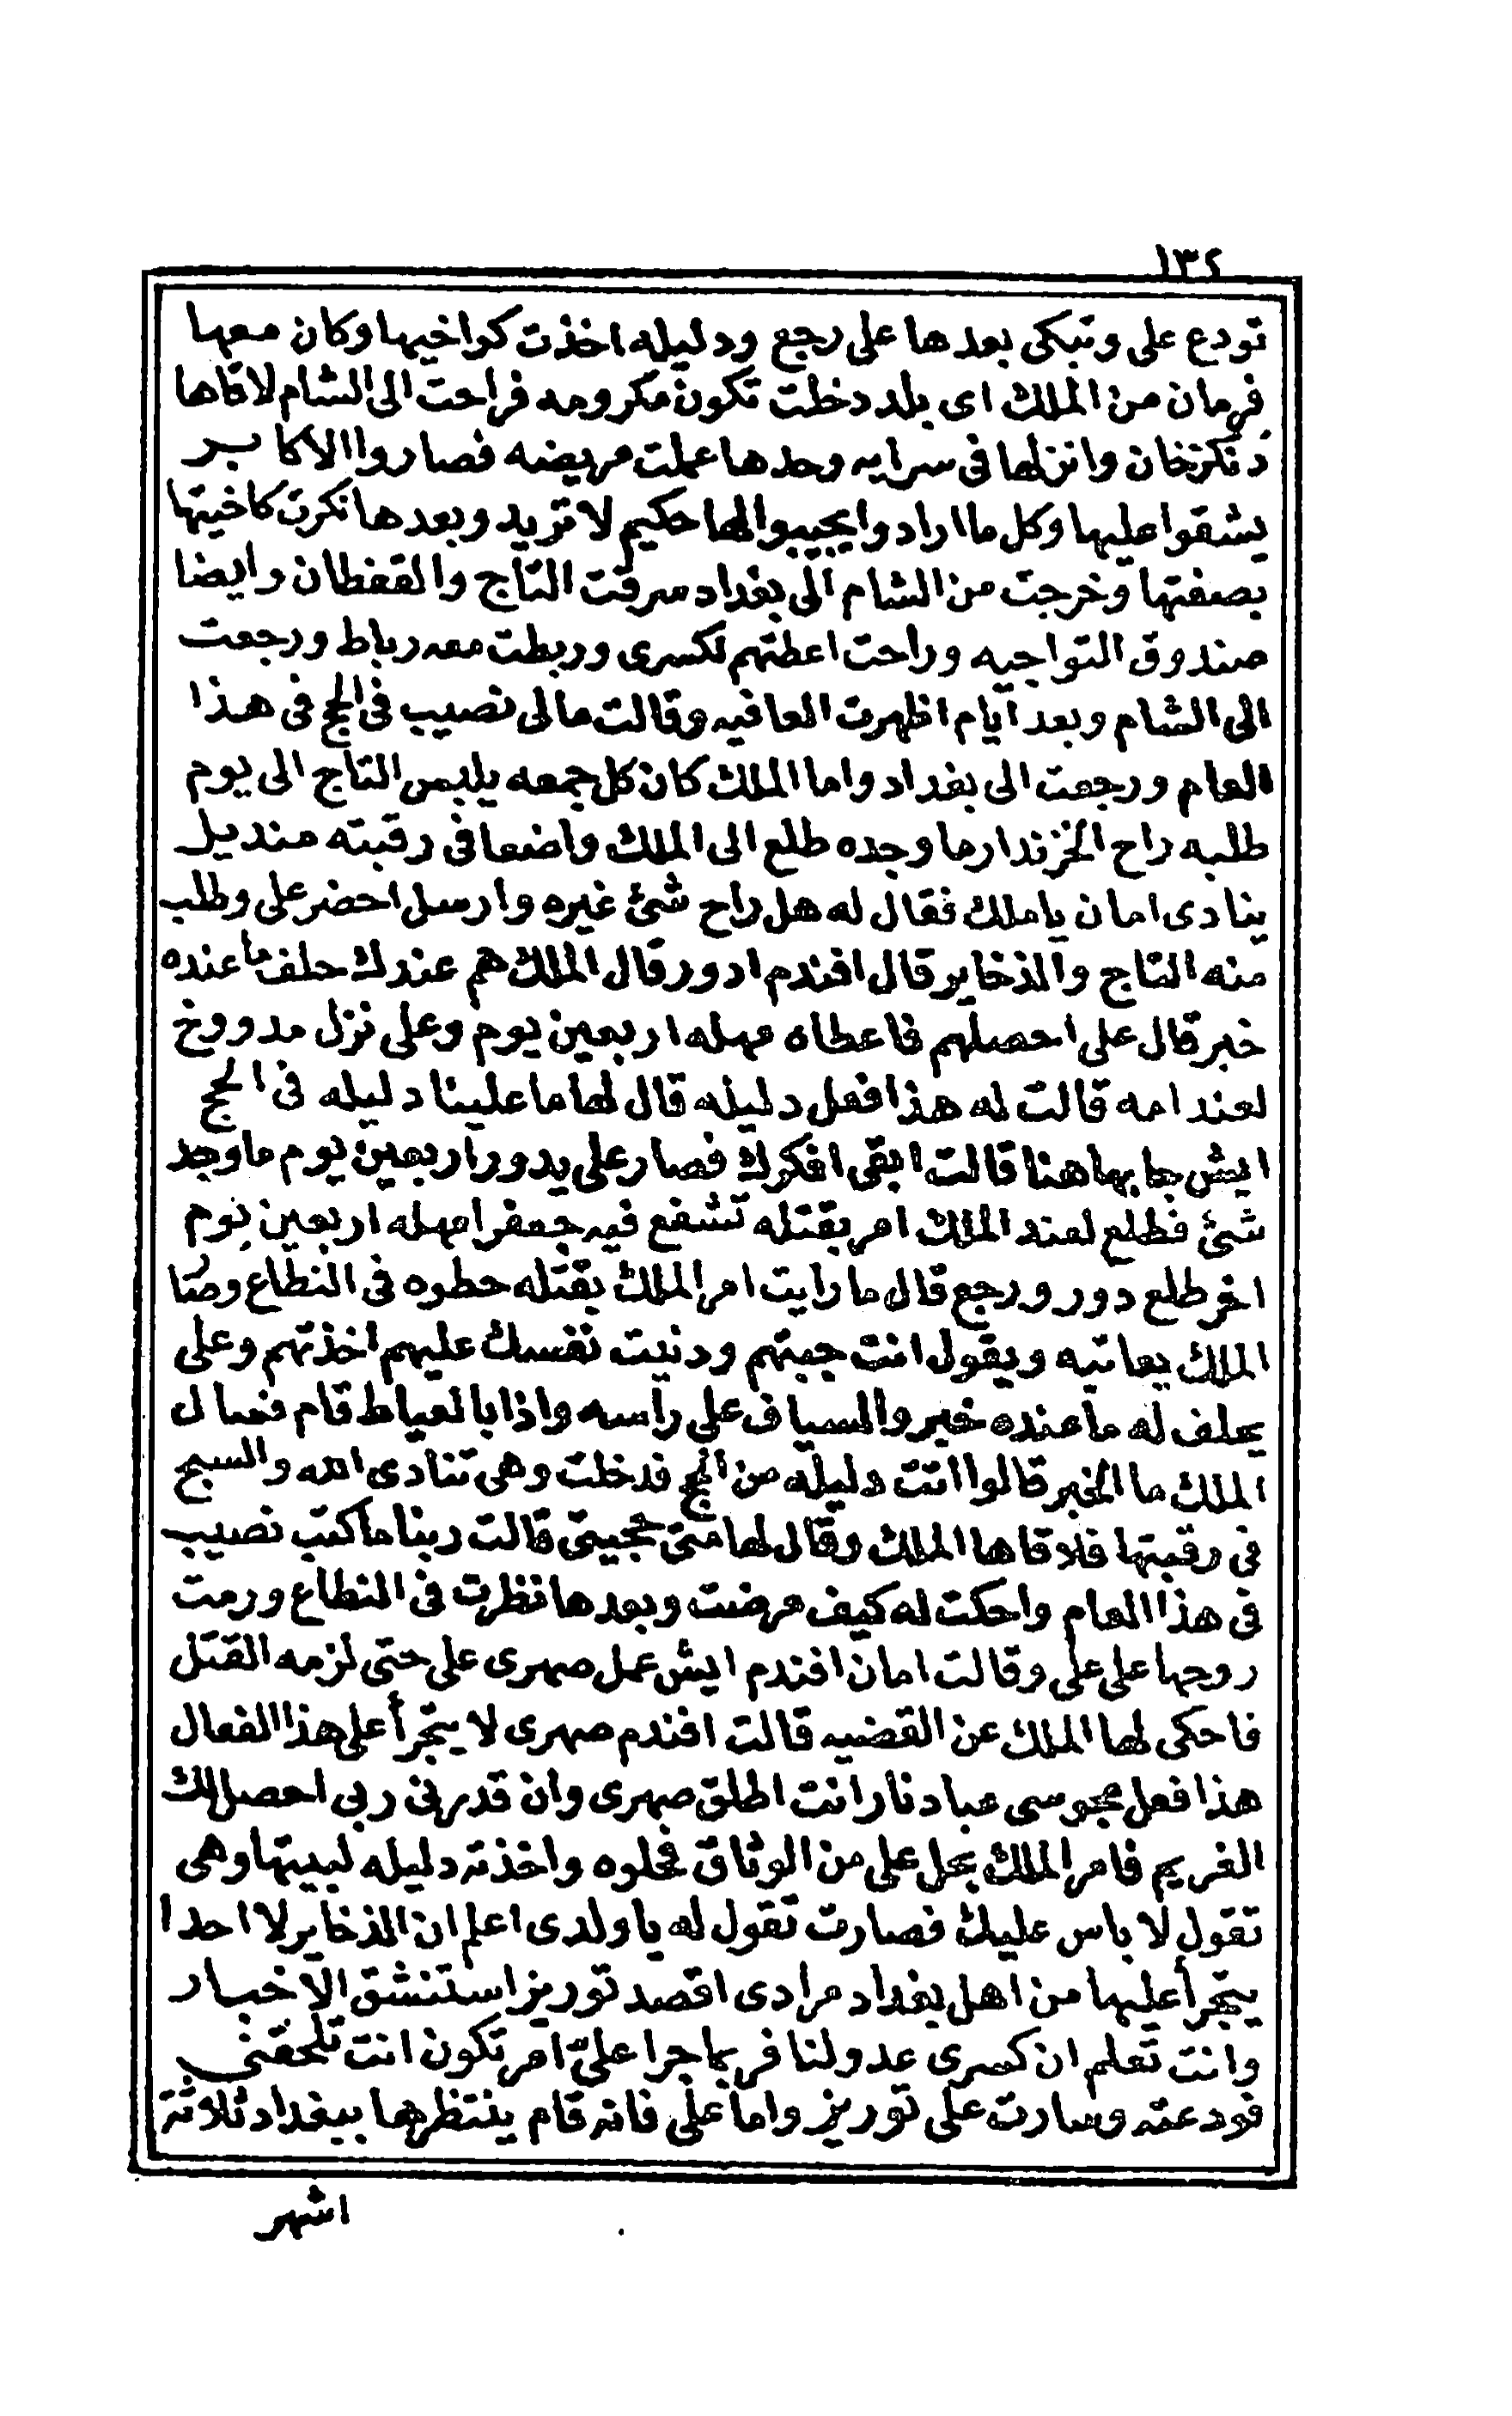 ١٣٤
تودع على وتبكى بعدها على رجع ودليله اخذت كواخيها وكان معها
فرمان من الملك اى بلد دخلت تكون مكرومه فراحت الى الشام لاقاها
دنكزخان وانزلها فى سرايه وحدها عملت مريضه فصاروا الاكابر
يشقوا عليها وكل ما ارادوا يجيبوا لها حكيم لا تريد وبعدها نكرت كاخيتها
بصفتها وخرجت من الشام الى بغداد سرقت التاج والقفطان وايضا
صندوق التواجيه وراحت اعطتهم لكسرى وربطت معه رباط ورجعت
الى الشام وبعد ايام اظهرت العافيه وقالت مالى نصيب فى الحج فى هذا
العام ورجعت الى بغداد واما الملك كان كل جمعه يلبس التاج الى يوم
طلبه راح الخزندار ما وجده طلع الى الملك واضعا فى رقبته منديل
ينادى امان يا ملك فقال له هل راح شئ غيره وارسل احضر على وطلب
منه التاج والذخاير قال افندم ادور قال الملك هم عندك حلف ما عنده
خبر قال على احصلهم فاعطاه مهله اربعين يوم وعلى نزل مدووخ
لعند امه قالت له هذا فعل دليله قال لها ما علينا دليله فى الحج
ايش جابها هنا قالت ابقى افكرك فصار على يدور اربعين يوم ما وجد
شئ فطلع لعند الملك امر بقتله تشفع فيه جعفر امهله اربعين يوم
اخر طلع دور ورجع قال ما رايت امر الملك بقتله حطوه فى النطاع وصار
الملك يعاتبه ويقول انت جبتهم ودنيت نفسك عليهم اخذتهم وعلى
يحلف له ما عنده خبر والسياف على راسه واذا بالعياط قام فقال
الملك ما الخبر قالوا اتت دليله من الحج فدخلت وهى تنادى الله والسبح
فى رقبتها فلاقاها الملك وقال لها متى حجيتى قالت ربنا ما كتب نصيب
فى هذا العام واحكت له كيف مرضت وبعدها نظرت فى النطاع ورمت
روحها على على وقالت امان افندم ايش عمل صهرى على حتى لزمه القتل
فاحكى لها الملك عن القضيه قالت افندم صهرى لا يتجرأ على هذا الفعال
هذا فعل مجوسى عباد نار انت اطلق صهرى وان قدرنى ربى احصل لك
الغريم فامر الملك بحل على من الوثاق فحلوه واخذته دليله لبيتها وهى
تقول لا باس عليك فصارت تقول له يا ولدى اعلم ان الذخاير لا احدا
يتجرأ عليها من اهل بغداد مرادى اقصد توريز استنشق الاخبار
وانت تعلم ان كسرى عدو لنا فربما جرا علىّ امر تكون انت تلحقنى
فودعته وسارت على توريز واما على فانه قام ينتظرها ببغداد ثلاثة
اشهر